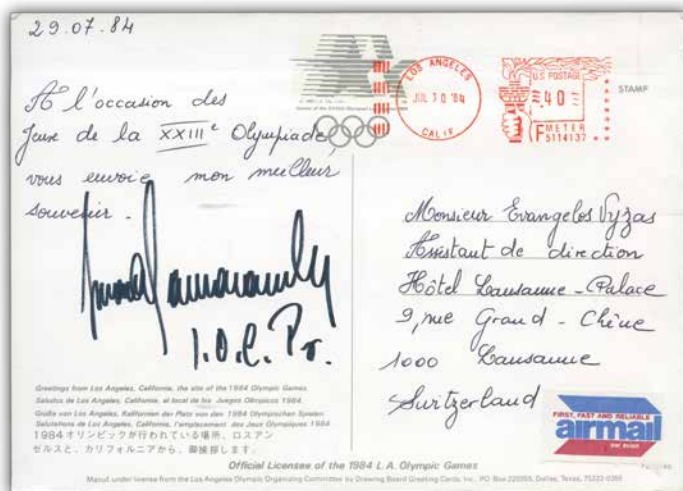 29.07.84
A l'occasion des
Jeux de la XXIIIe Olympiade,
vous envoie mon meilleur
souvenir.
I.O.C. Pr.
LOS ANGELES
JUL 30 '84
CALIF
U.S. POSTAGE
.40
F METER
5114137
STAMP
Monsieur Evangelos Vyzas
Assistant de direction
Hôtel Lausanne-Palace
9, rue Grand-Chêne
1000 Lausanne
Switzerland
FIRST, FAST AND RELIABLE
airmail
par avion
Greetings from Los Angeles, California, the site of the 1984 Olympic Games
Saludos de Los Angeles, California, el local de los Juegos Olímpicos 1984.
Grüße von Los Angeles, Kalifornien der Platz von den 1984 Olympischen Spielen
Salutations de Los Angeles, California, l'emplacement des Jeux Olympiques 1984
1984オリンピックが行われている場所、ロスアン
ゼルスと、カリフォルニアから、御挨拶します。
Official Licensee of the 1984 L.A. Olympic Games
Manuf. under license from the Los Angeles Olympic Organizing Committee by Drawing Board Greeting Cards, Inc., PO Box 220355, Dallas, Texas, 75222-0355